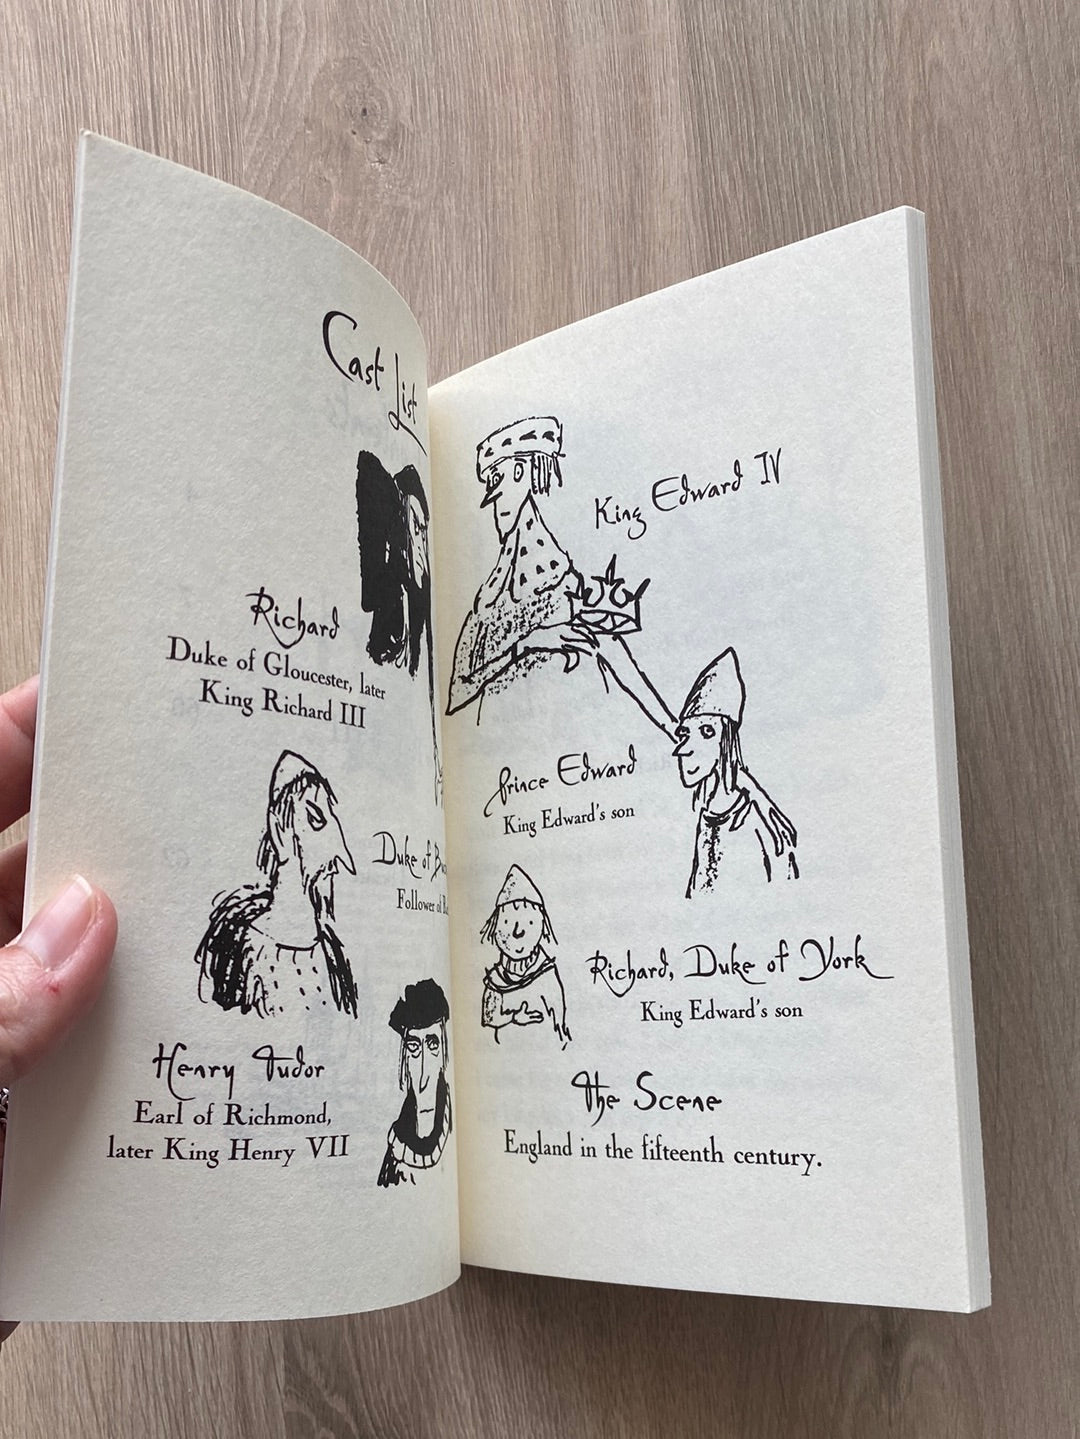 Cast List
Richard
Duke of Gloucester, later
King Richard III
Duke of
Follower of
Henry Tudor
Earl of Richmond,
later King Henry VII
King Edward IV
Prince Edward
King Edward's son
Richard, Duke of York
King Edward's son
The Scene
England in the fifteenth century.